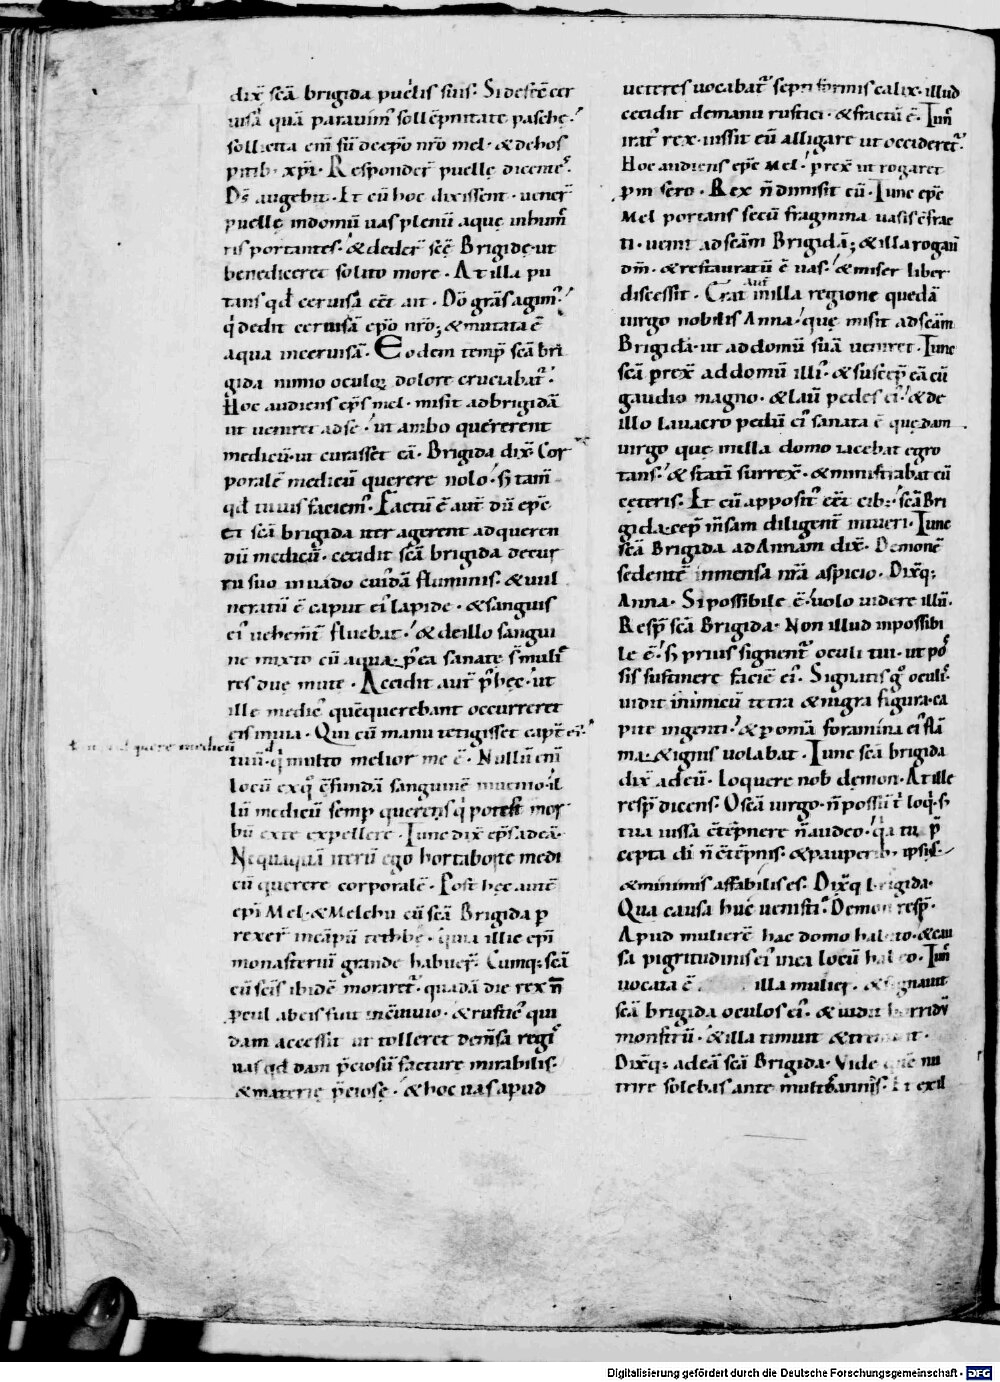 dix̄ scā brigida puellis suis. Si defec̄ cer
uisā quā parauim᷒ sollēpnitate paschę.
sollicita enī sū de ep̄o nrō mel. & de hos
pitib᷒ xp̄i. Responder̄ puelle dicentes.
Dꝰ augebit. Et cū hoc dixissent. uener̄
puellę in domū uas plenū aquę in humer̄
ris portantes. & deder̄ scē Brigidę. ut
benediceret solito more. At illa pu
tans qd̄ ceruisā eēt ait. Dō grās agim᷒
q̇ dedit ceruisā ep̄o nrō; & mutata ē
aqua in ceruisā. Eodem temp̄ scā bri
gida nimio oculoꝝ dolore cruciabat᷒.
Hoc audiens ep̄s mel. misit ad brigidā
ut ueniret ad se. ut ambo quererent
medicū. ut curasset eā. Brigida dix̄. Cor
poralē medicū querere nolo. s; tam̄
qd̄ iubes faciem᷒. Factū ē aut̄ dū ep̄c
et scā brigida iter agerent ad queren
dū medicū. cecidit scā brigida de cur
ru suo in uado cuiᷤdā fluminis. & uul
neratū ē caput ei᷒ lapide. & sanguis
ei᷒ uehem̄t̄ fluebat. & de illo sangui
ne mixto cū aqua. p̄ea sanatę sī muli
res due mute. Accidit aut̄ p̄ hęc. ut
ille medic᷒ quē querebant occurreret
eis in uia. Qui cū manu tetigisset capt̄ ei᷒.
querere medicū
tuū. q̇ multo melior me ē. Nullū enī
locū ex q᷒ effundā sanguinē inuenio. il
lū medicū semp̄ querens q̇ potest mor
bū ex te expellere. Tunc dix̄ ep̄s ad eā.
Nequaquā iterū ego hortabor te medi
cū querere corporalē. Post hęc autē
epī Mel. & Melchu cū scā Brigida p̄
rexer̄ in cāpū tethbę. quia illic epī
monasteriū grande habuer̄. Cumq; scā
cū scīs ibidē moraret᷒. quadā die rex n̄
procul ab eis fuit in cōuiuio. & rustic᷒ qui
dam accessit ut tolleret de mēsa regis
uas qd̄ dam p̄ciosū facture mirabilis.
& materię p̄ciosę. & hoc uas apud
ueteres uocabat᷒ septiformis calix. illud
cecidit de manu rustici. & fractū ē. Tum
irat᷒ rex. iussit eū alligare ut occideret᷒.
Hoc audiens ep̄c Mel. p̄rex̄ ut rogaret
p̄ misero. Rex n̄ dimisit eū. Tunc ep̄c
Mel portans secū fragmina uasis cōfrac
ti. uenit ad scām Brigidā; & illa rogauit
dm̄. & restauratū ē uas. & miser liber
discessit. Erat aut̄ in illa regione quedā
uirgo nobilis Anna. quę misit ad scām
Brigidā. ut ad domū suā ueniret. Tunc
scā p̄rex̄ ad domū illi᷒. & suscep̄ eā cū
gaudio magno. & lauit pedes ei᷒. & de
illo lauacro pedū ei᷒ sanata ē quędam
uirgo quę in illa domo iacebat egro
tans. & statī surrex̄. & ministrabat cū
ceteris. Et cū apposit᷒ eēt cib᷒. scā Bri
gida cep̄ mēsam diligent̄ intueri. Tunc
scā Brigida ad Annam dix̄. Demonē
sedentē in mensa nrā aspicio. Dixq;
Anna. Si possibile ē. uolo uidere illū.
Resp̄ scā Brigida. Non illud inpossibi
le ē. s; prius signent᷒ oculi tui. ut pos
sis sustinere faciē ei᷒. Signatis g᷒ oculis.
uidit inimicū tetra & nigra figura. ca
pite ingenti. & p̄ omīa foramina ei᷒ flā
ma. & ignis uolabat. Tunc scā brigida
dix̄ ad eū. Loquere nob̄ demon. At ille
resp̄ dicens. O scā uirgo. n̄ possū t̄ loq̇. s;
tua iussa cōtēpnere n̄ audeo. q̇a tu p̄
cepta dī n̄ cōtēpnis. & pauperib᷒ ipsis.
& minimis affabilis es. Dixq; brigida.
Qua causa huc uenisti. Demon resp̄.
Apud mulierē hac domo habito. & cau
sa pigritudinis ei᷒ in ea locū habeo. Tum
uocata ē illa mulier. & signauit
scā brigida oculos ei᷒. & uidit horridū
monstrū. & illa timuit & tremuit.
Dixq; ad eā scā Brigida. Vide quē nu
trire solebas ante multos annos. Et exil
Digitalisierung gefördert durch die Deutsche Forschungsgemeinschaft - DFG